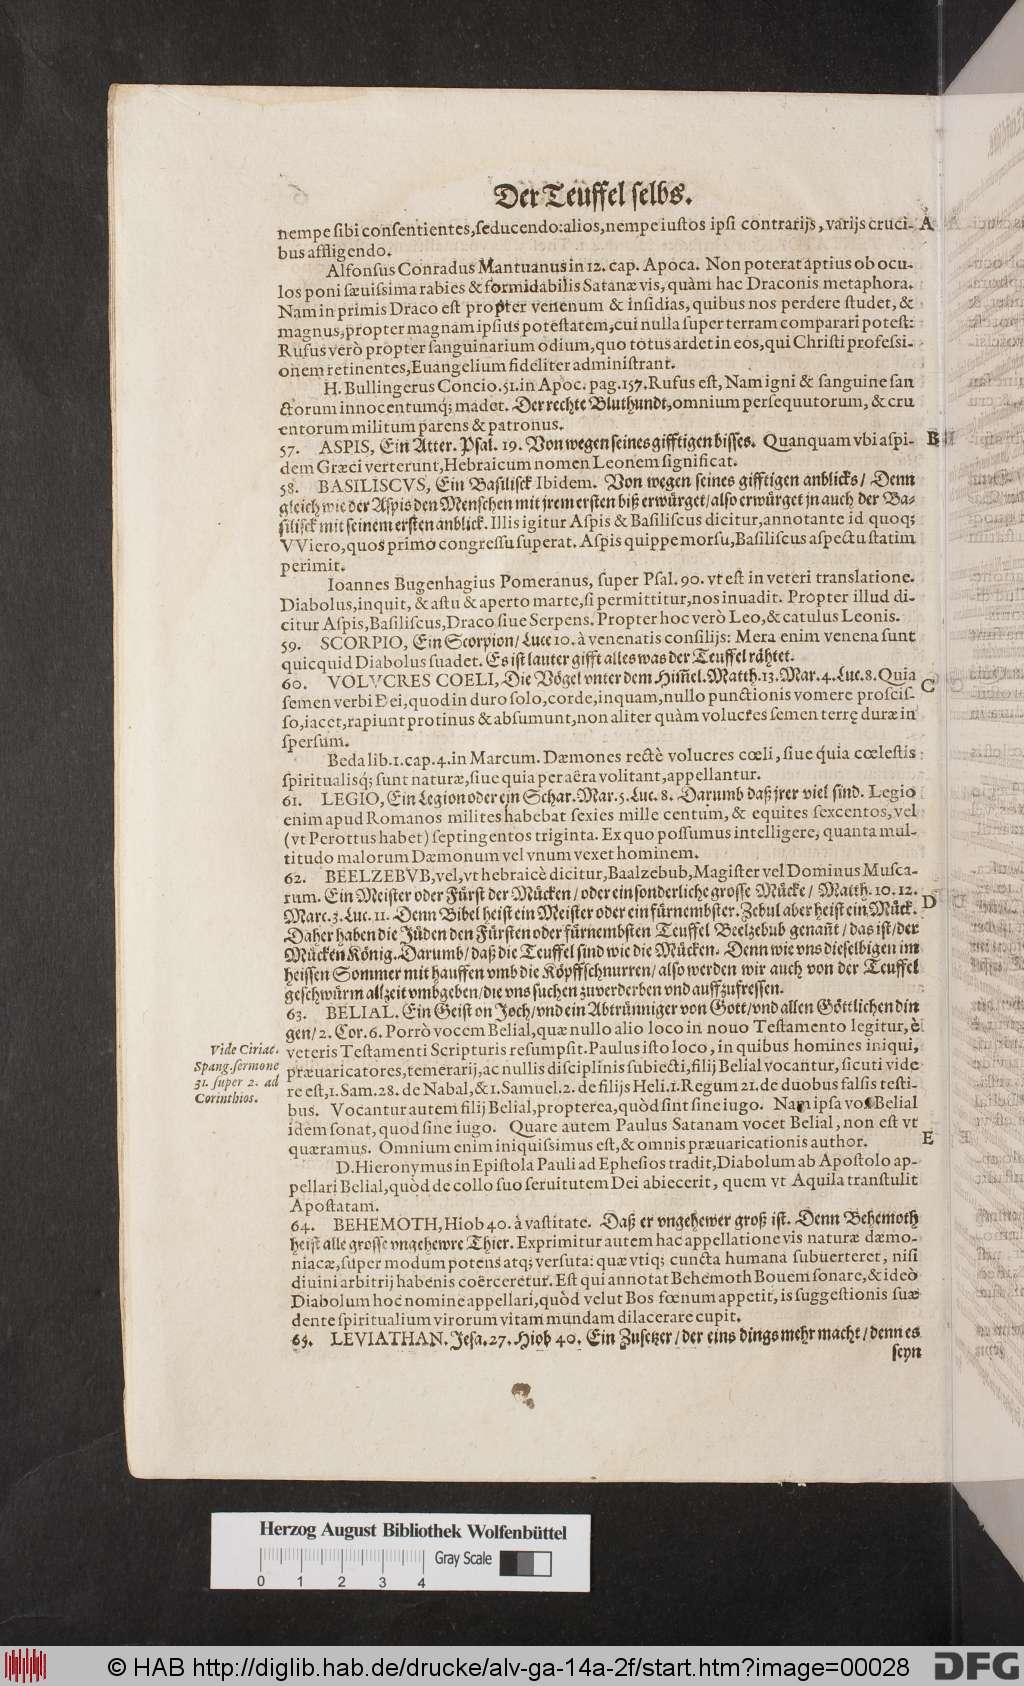 Der Teuffel selbs.
nempe sibi consentientes, seducendo: alios, nempe iustos ipsi contrarijs, varijs cruci- A
bus affligendo.
Alfonsus Conradus Mantuanus in 12. cap. Apoca. Non poterat aptius ob ocu-
los poni sæuissima rabies & formidabilis Satanæ vis, quàm hac Draconis metaphora.
Nam in primis Draco est propter venenum & insidias, quibus nos perdere studet, &
magnus, propter magnam ipsius potestatem, cui nulla super terram comparari potest:
Rufus verò propter sanguinarium odium, quo totus ardet in eos, qui Christi professi-
onem retinentes, Euangelium fideliter administrant.
H. Bullingerus Concio. 51. in Apoc. pag. 157. Rufus est, Nam igni & sanguine san
ctorum innocentumq́; madet. Der rechte Bluthundt, omnium persequutorum, & cru
entorum militum parens & patronus.
57. ASPIS, Ein Atter. Psal. 19. Von wegen seines gifftigen bisses. Quanquam vbi aspi- B
dem Græci verterunt, Hebraicum nomen Leonem significat.
58. BASILISCVS, Ein Basilisck Ibidem. Von wegen seines gifftigen anblicks / Denn
gleich wie der Aspis den Menschen mit jrem ersten biß erwürget / also erwürget jn auch der Ba-
silisck mit seinem ersten anblick. Illis igitur Aspis & Basiliscus dicitur, annotante id quoq;
VViero, quos primo congressu superat. Aspis quippe morsu, Basiliscus aspectu statim
perimit.
Ioannes Bugenhagius Pomeranus, super Psal. 90. vt est in veteri translatione.
Diabolus, inquit, & astu & aperto marte, si permittitur, nos inuadit. Propter illud di-
citur Aspis, Basiliscus, Draco siue Serpens. Propter hoc verò Leo, & catulus Leonis.
59. SCORPIO, Ein Scorpion / Luce 10. à venenatis consilijs: Mera enim venena sunt
quicquid Diabolus suadet. Es ist lauter gifft alles was der Teuffel rähtet.
60. VOLVCRES COELI, Die Vögel vnter dem Him̃el. Matth. 13. Mar. 4. Luc. 8. Quia C
semen verbi Dei, quod in duro solo, corde, inquam, nullo punctionis vomere proscis-
so, iacet, rapiunt protinus & absumunt, non aliter quàm volucres semen terrę duræ in
spersum.
Beda lib. 1. cap. 4. in Marcum. Dæmones rectè volucres cœli, siue quia cœlestis
spiritualisq́; sunt naturæ, siue quia per aëra volitant, appellantur.
61. LEGIO, Ein Legion oder ein Schar. Mar. 5. Luc. 8. Darumb daß jrer viel sind. Legio
enim apud Romanos milites habebat sexies mille centum, & equites sexcentos, vel
(vt Perottus habet) septingentos triginta. Ex quo possumus intelligere, quanta mul-
titudo malorum Dæmonum vel vnum vexet hominem.
62. BEELZEBVB, vel, vt hebraicè dicitur, Baalzebub, Magister vel Dominus Musca-
rum. Ein Meister oder Fürst der Mücken / oder ein sonderliche grosse Mücke / Matth. 10. 12. D
Marc. 3. Luc. 11. Denn Bibel heist ein Meister oder ein fürnembster. Zebul aber heist ein Mück.
Daher haben die Jüden den Fürsten oder fürnembsten Teuffel Beelzebub genañt / das ist / der
Mücken König. Darumb / daß die Teuffel sind wie die Mücken. Denn wie vns dieselbigen im
heissen Sommer mit hauffen vmb die Köpff schnurren / also werden wir auch von der Teuffel
geschwürm allzeit vmbgeben / die vns suchen zuverderben vnd auffzufressen.
63. BELIAL. Ein Geist on Joch / vnd ein Abtrünniger von Gott / vnd allen Göttlichen din
gen / 2. Cor. 6. Porrò vocem Belial, quæ nullo alio loco in nouo Testamento legitur, è
veteris Testamenti Scripturis resumpsit. Paulus isto loco, in quibus homines iniqui,
præuaricatores, temerarij, ac nullis disciplinis subiecti, filij Belial vocantur, sicuti vide
re est, 1. Sam. 28. de Nabal, & 1. Samuel. 2. de filijs Heli. 1. Regum 21. de duobus falsis testi-
bus. Vocantur autem filij Belial, propterea, quòd sint sine iugo. Nam ipsa vox Belial
idem sonat, quod sine iugo. Quare autem Paulus Satanam vocet Belial, non est vt E
quæramus. Omnium enim iniquissimus est, & omnis præuaricationis author.
Vide Ciriac.
Spang. sermone
31. super 2. ad
Corinthios.
D. Hieronymus in Epistola Pauli ad Ephesios tradit, Diabolum ab Apostolo ap-
pellari Belial, quòd de collo suo seruitutem Dei abiecerit, quem vt Aquila transtulit
Apostatam.
64. BEHEMOTH, Hiob 40. à vastitate. Daß er vngehewer groß ist. Denn Behemoth
heist alle grosse vngehewre Thier. Exprimitur autem hac appellatione vis naturæ dæmo-
niacæ, super modum potens atq; versuta: quæ vtiq; cuncta humana subuerteret, nisi
diuini arbitrij habenis coërceretur. Est qui annotat Behemoth Bouem sonare, & ideò
Diabolum hoc nomine appellari, quòd velut Bos fœnum appetit, is suggestionis suæ
dente spiritualium virorum vitam mundam dilacerare cupit.
65. LEVIATHAN. Jesa. 27. Hiob 40. Ein Zusetzer / der eins dings mehr macht / denn es
seyn
Herzog August Bibliothek Wolfenbüttel
Gray Scale
0 1 2 3 4
© HAB http://diglib.hab.de/drucke/alv-ga-14a-2f/start.htm?image=00028
DFG